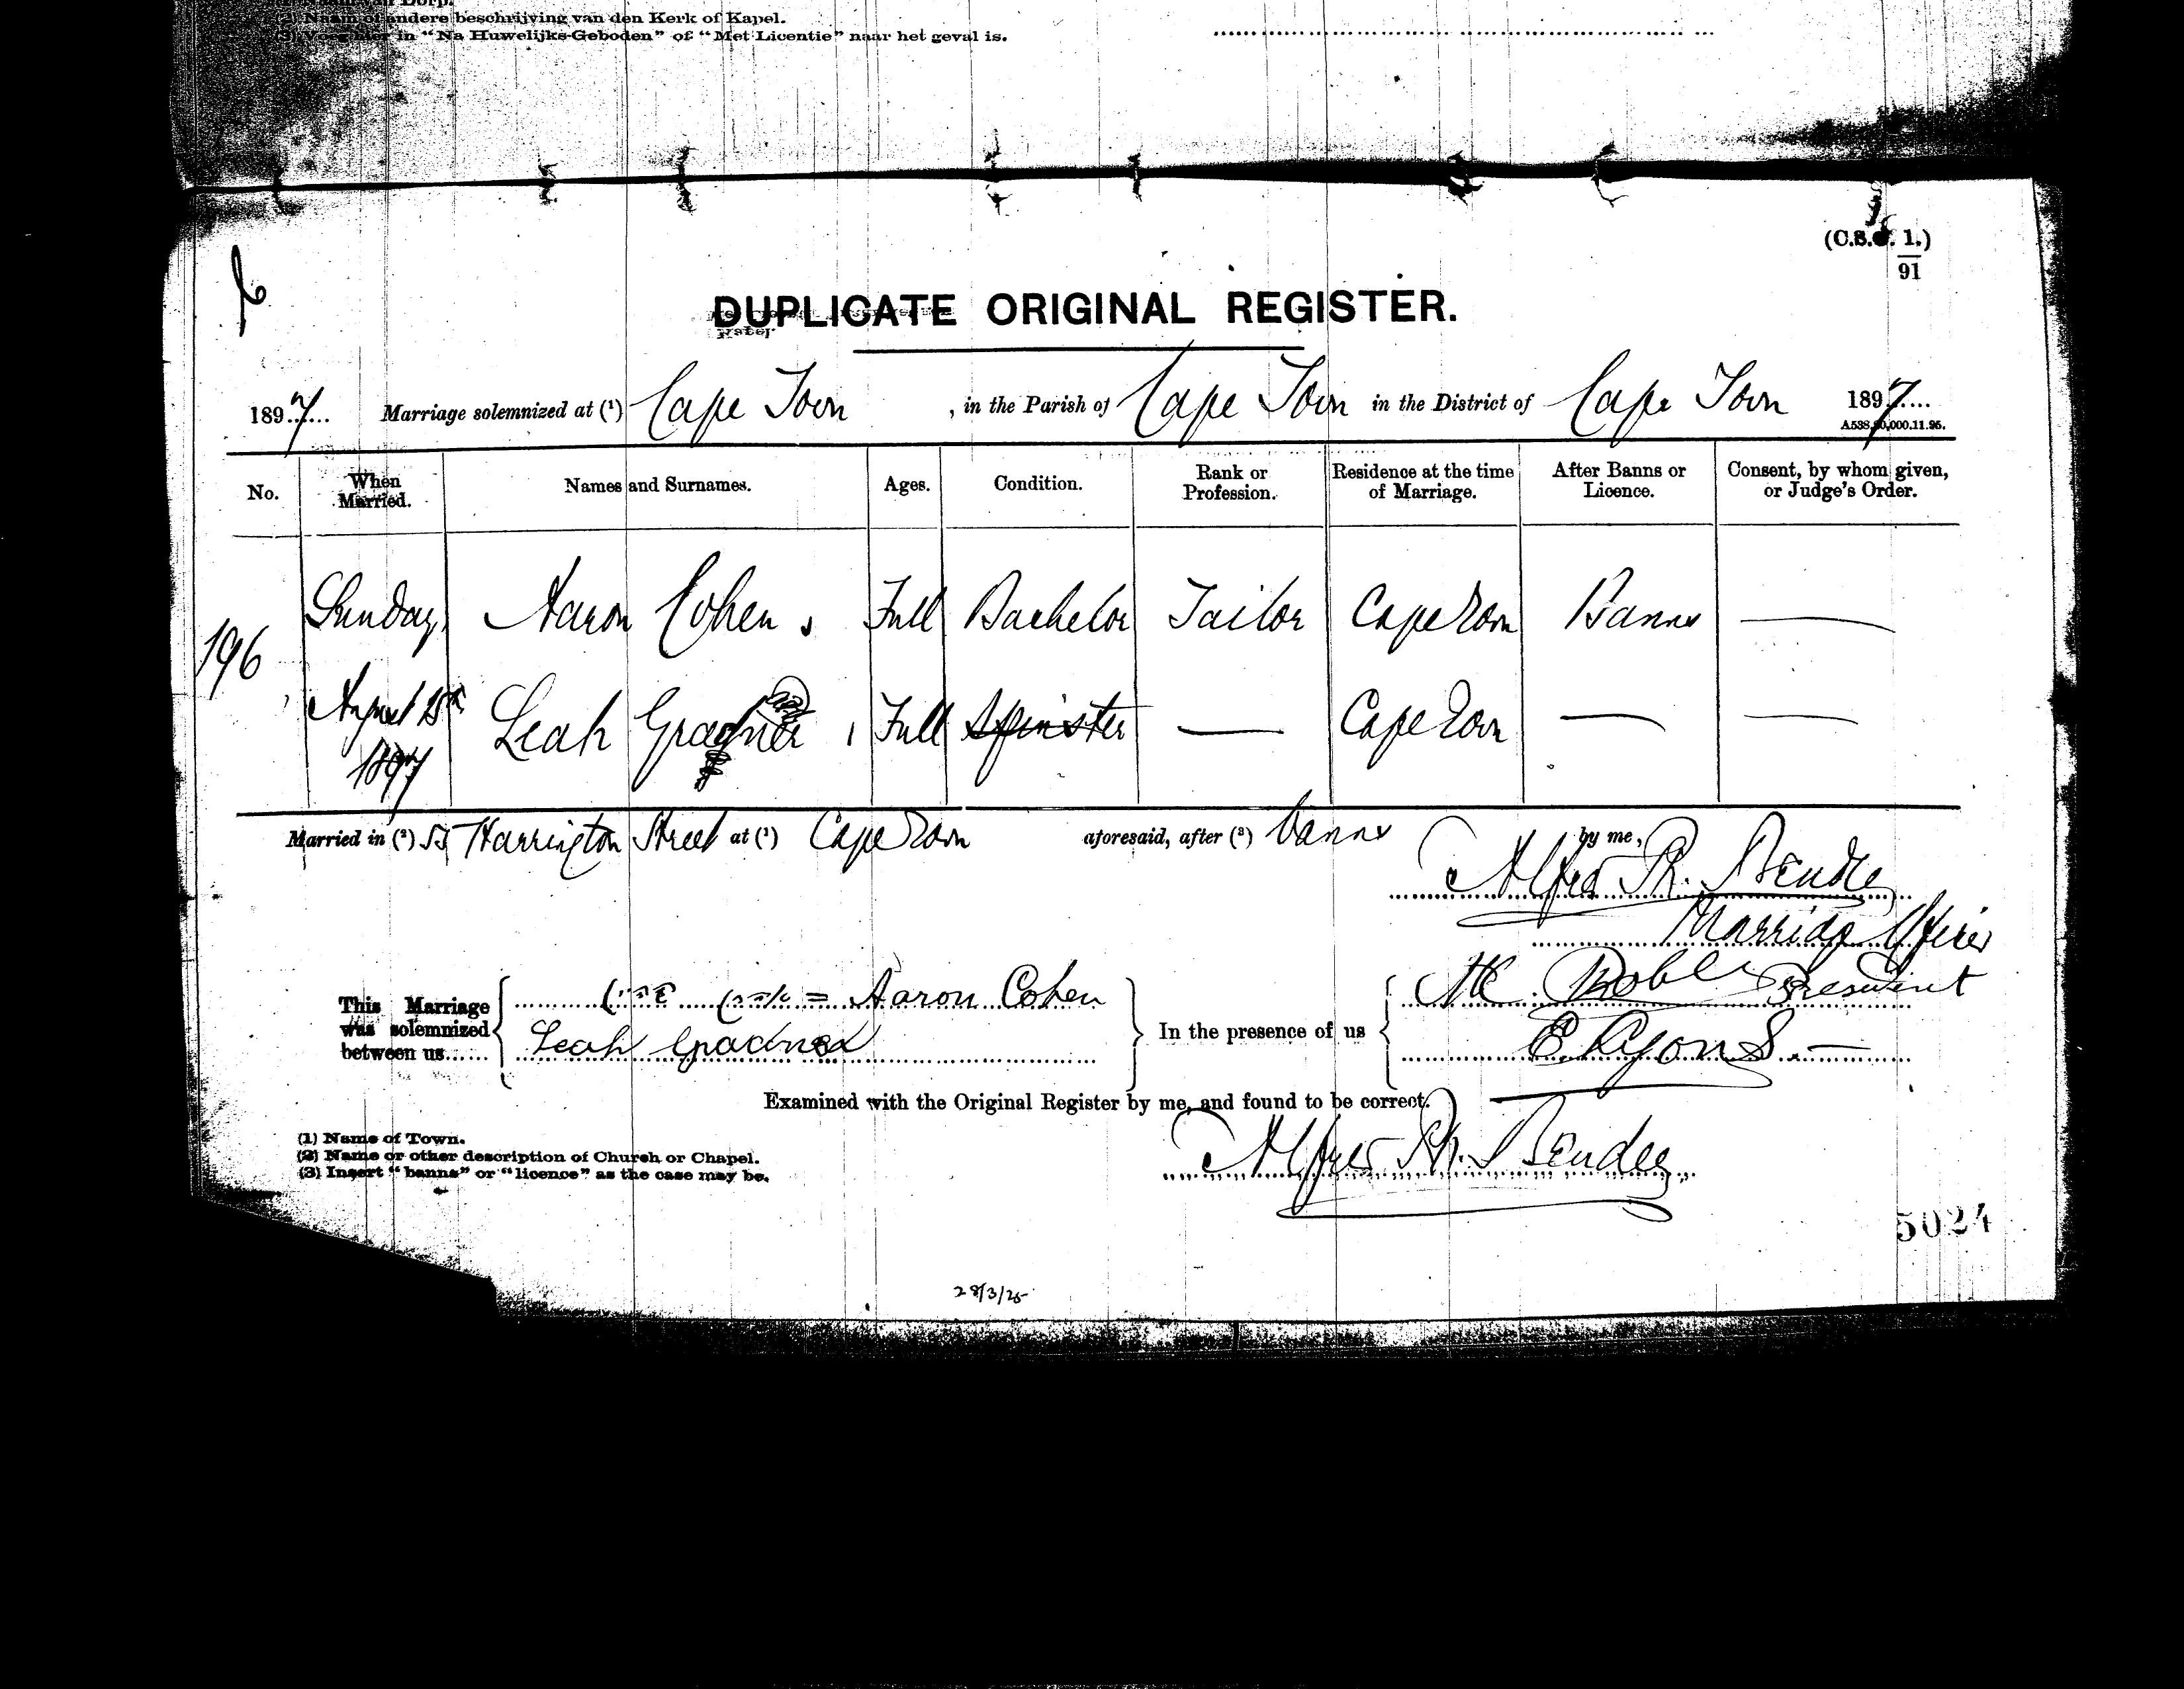 (2) Naam of andere beschrijving van den Kerk of Kapel.
(3) Voeg hier in "Na Huwelijks-Geboden" of "Met Licentie" naar het geval is.
(C.S.O. 1.)
91
DUPLICATE ORIGINAL REGISTER.
1897 Marriage solemnized at (1) Cape Town, in the Parish of Cape Town in the District of Cape Town 1897
No. When Married. Names and Surnames. Ages. Condition. Rank or Profession. Residence at the time of Marriage. After Banns or Licence. Consent, by whom given, or Judge's Order.
196 Sunday, Aaron Cohen, Full Bachelor Tailor Cape Town Banns —
August 15th 1897 Leah Gradner, Full Spinster — Cape Town — —
Married in (2) 55 Harrington Street at (1) Cape Town aforesaid, after (3) banns by me,
Alfred Ph. Bender
Marriage Officer
This Marriage was solemnized between us
אהרן כהן = Aaron Cohen
Leah Gradner
In the presence of us
President
E. Lyons. —
Examined with the Original Register by me, and found to be correct.
Alfred Ph. Bender
(1) Name of Town.
(2) Name or other description of Church or Chapel.
(3) Insert "banns" or "licence" as the case may be.
5024
28/3/25